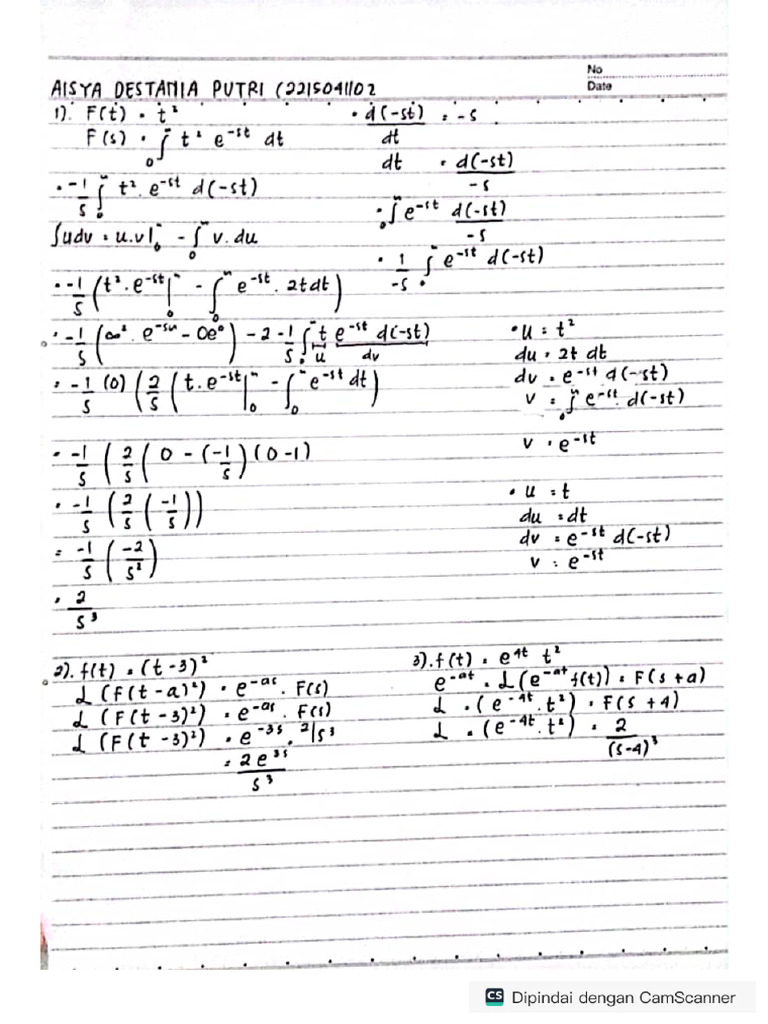 No
Date
AISYA DESTANIA PUTRI (2215041102
1). F(t) = t²
F(s) = ∫₀^∞ t² e^-st dt
= -1/s ∫₀^∞ t². e^-st d(-st)
∫udv = u.v|₀^∞ - ∫₀^∞ v.du
= -1/s (t². e^-st|₀^∞ - ∫₀^∞ e^-st. 2tdt)
= -1/s (∞². e^-s∞ - 0e⁰) - 2 - 1/s ∫₀^∞ t e^-st d(-st)
u dv
= -1/s (0) (2/s (t. e^-st|₀^∞ - ∫₀^∞ e^-st dt)
= -1/s (2/s (0 - (-1/s) (0-1)
= -1/s (2/s (-1/s))
= -1/s (-2/s²)
= 2/s³
• d(-st)/dt = -s
dt = d(-st)/-s
• ₀∫^∞ e^-st d(-st)/-s
• 1/-s ∫₀^∞ e^-st d(-st)
• u = t²
du = 2t dt
dv = e^-st d(-st)
v = ₀∫^∞ e^-st. d(-st)
v = e^-st
• u = t
du = dt
dv = e^-st d(-st)
v = e^-st
2). f(t) = (t-3)²
L (F(t-a)²) = e^-as. F(s)
L (F(t-3)²) = e^-as. F(s)
L (F(t-3)²) = e^-3s. 2/s³
= 2e^3s/s³
3). f(t) = e^4t t²
e^-at = L(e^-at f(t)) = F(s+a)
L = (e^-4t. t²) = F(s+4)
L = (e^-4t. t²) = 2/(s-4)³
CS Dipindai dengan CamScanner